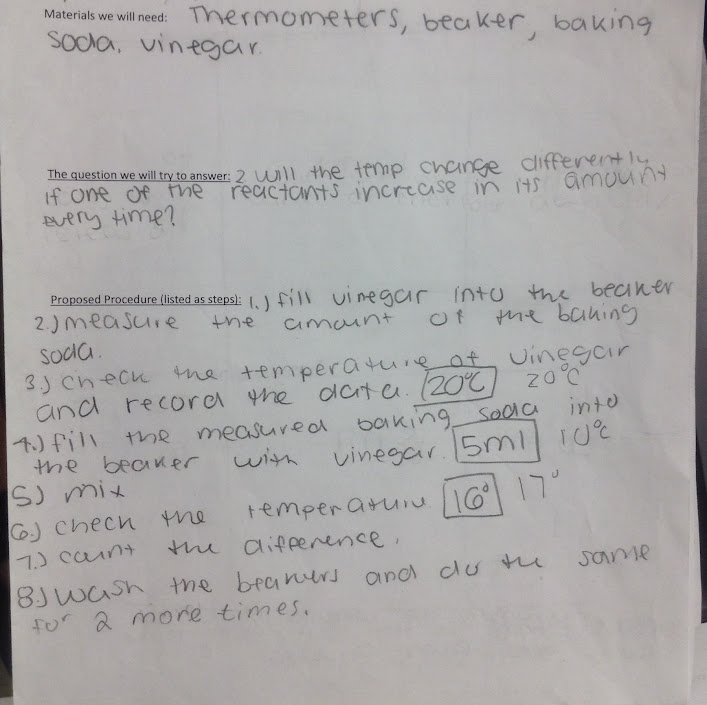 Materials we will need: Thermometers, beaker, baking
soda, vinegar.
The question we will try to answer: 2 will the temp change differently
if one of the reactants increase in its amount
every time?
Proposed Procedure (listed as steps): 1.) fill vinegar into the beaker
2.) measure the amount of the baking
soda.
3.) check the temperature of vinegar
and record the data. 20°C 20°C
4.) fill the measured baking soda into
the beaker with vinegar. 5ml 10°C
5) mix
6.) check the temperature 16° 17°
7.) count the difference.
8.) wash the beakers and do the same
for 2 more times.